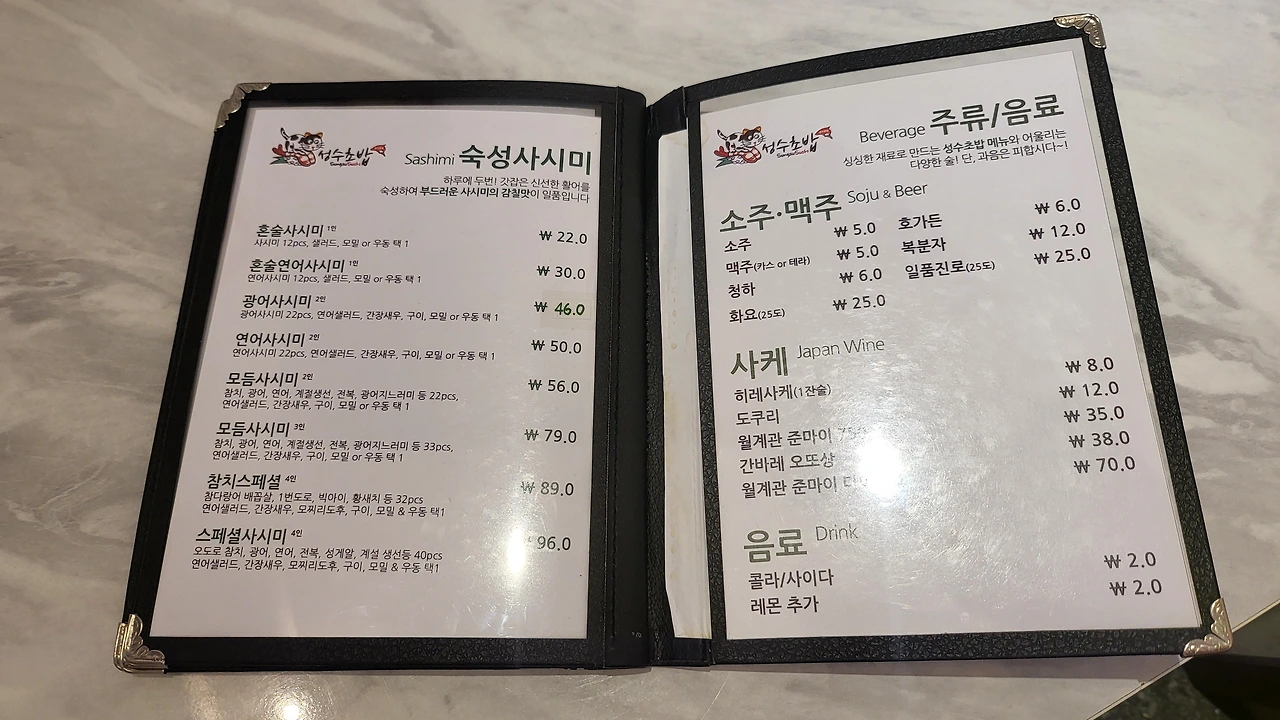 성수초밥
Sashimi 숙성사시미
하루에 두번! 갓잡은 신선한 활어를
숙성하여 부드러운 사시미의 감칠맛이 일품입니다
혼술사시미 1인 ₩ 22.0
사시미 12pcs, 샐러드, 모밀 or 우동 택 1
혼술연어사시미 1인 ₩ 30.0
연어사시미 12pcs, 샐러드, 모밀 or 우동 택 1
광어사시미 2인 ₩ 46.0
광어사시미 22pcs, 연어샐러드, 간장새우, 구이, 모밀 or 우동 택 1
연어사시미 2인 ₩ 50.0
연어사시미 22pcs, 연어샐러드, 간장새우, 구이, 모밀 or 우동 택 1
모듬사시미 2인 ₩ 56.0
참치, 광어, 연어, 계절생선, 전복, 광어지느러미 등 22pcs,
연어샐러드, 간장새우, 구이, 모밀 or 우동 택 1
모듬사시미 3인 ₩ 79.0
참치, 광어, 연어, 계절생선, 전복, 광어지느러미 등 33pcs,
연어샐러드, 간장새우, 구이, 모밀 or 우동 택 1
참치스페셜 4인 ₩ 89.0
참다랑어 배꼽살, 1번도로, 빅아이, 황새치 등 32pcs
연어샐러드, 간장새우, 모찌리도후, 구이, 모밀 & 우동 택1
스페셜사시미 4인 96.0
오도로 참치, 광어, 연어, 전복, 성게알, 계설 생선등 40pcs
연어샐러드, 간장새우, 모찌리도후, 구이, 모밀 & 우동 택1
성수초밥
Beverage 주류/음료
싱싱한 재료로 만드는 성수초밥 메뉴와 어울리는
다양한 술! 단, 과음은 피합시다~!
소주·맥주 Soju & Beer
소주 ₩ 5.0 호가든 ₩ 6.0
맥주(카스 or 테라) ₩ 5.0 복분자 ₩ 12.0
청하 ₩ 6.0 일품진로(25도) ₩ 25.0
화요(25도) ₩ 25.0
사케 Japan Wine
히레사케(1잔술) ₩ 8.0
도쿠리 ₩ 12.0
월계관 준마이 ₩ 35.0
간바레 오또상 ₩ 38.0
월계관 준마이 ₩ 70.0
음료 Drink
콜라/사이다 ₩ 2.0
레몬 추가 ₩ 2.0